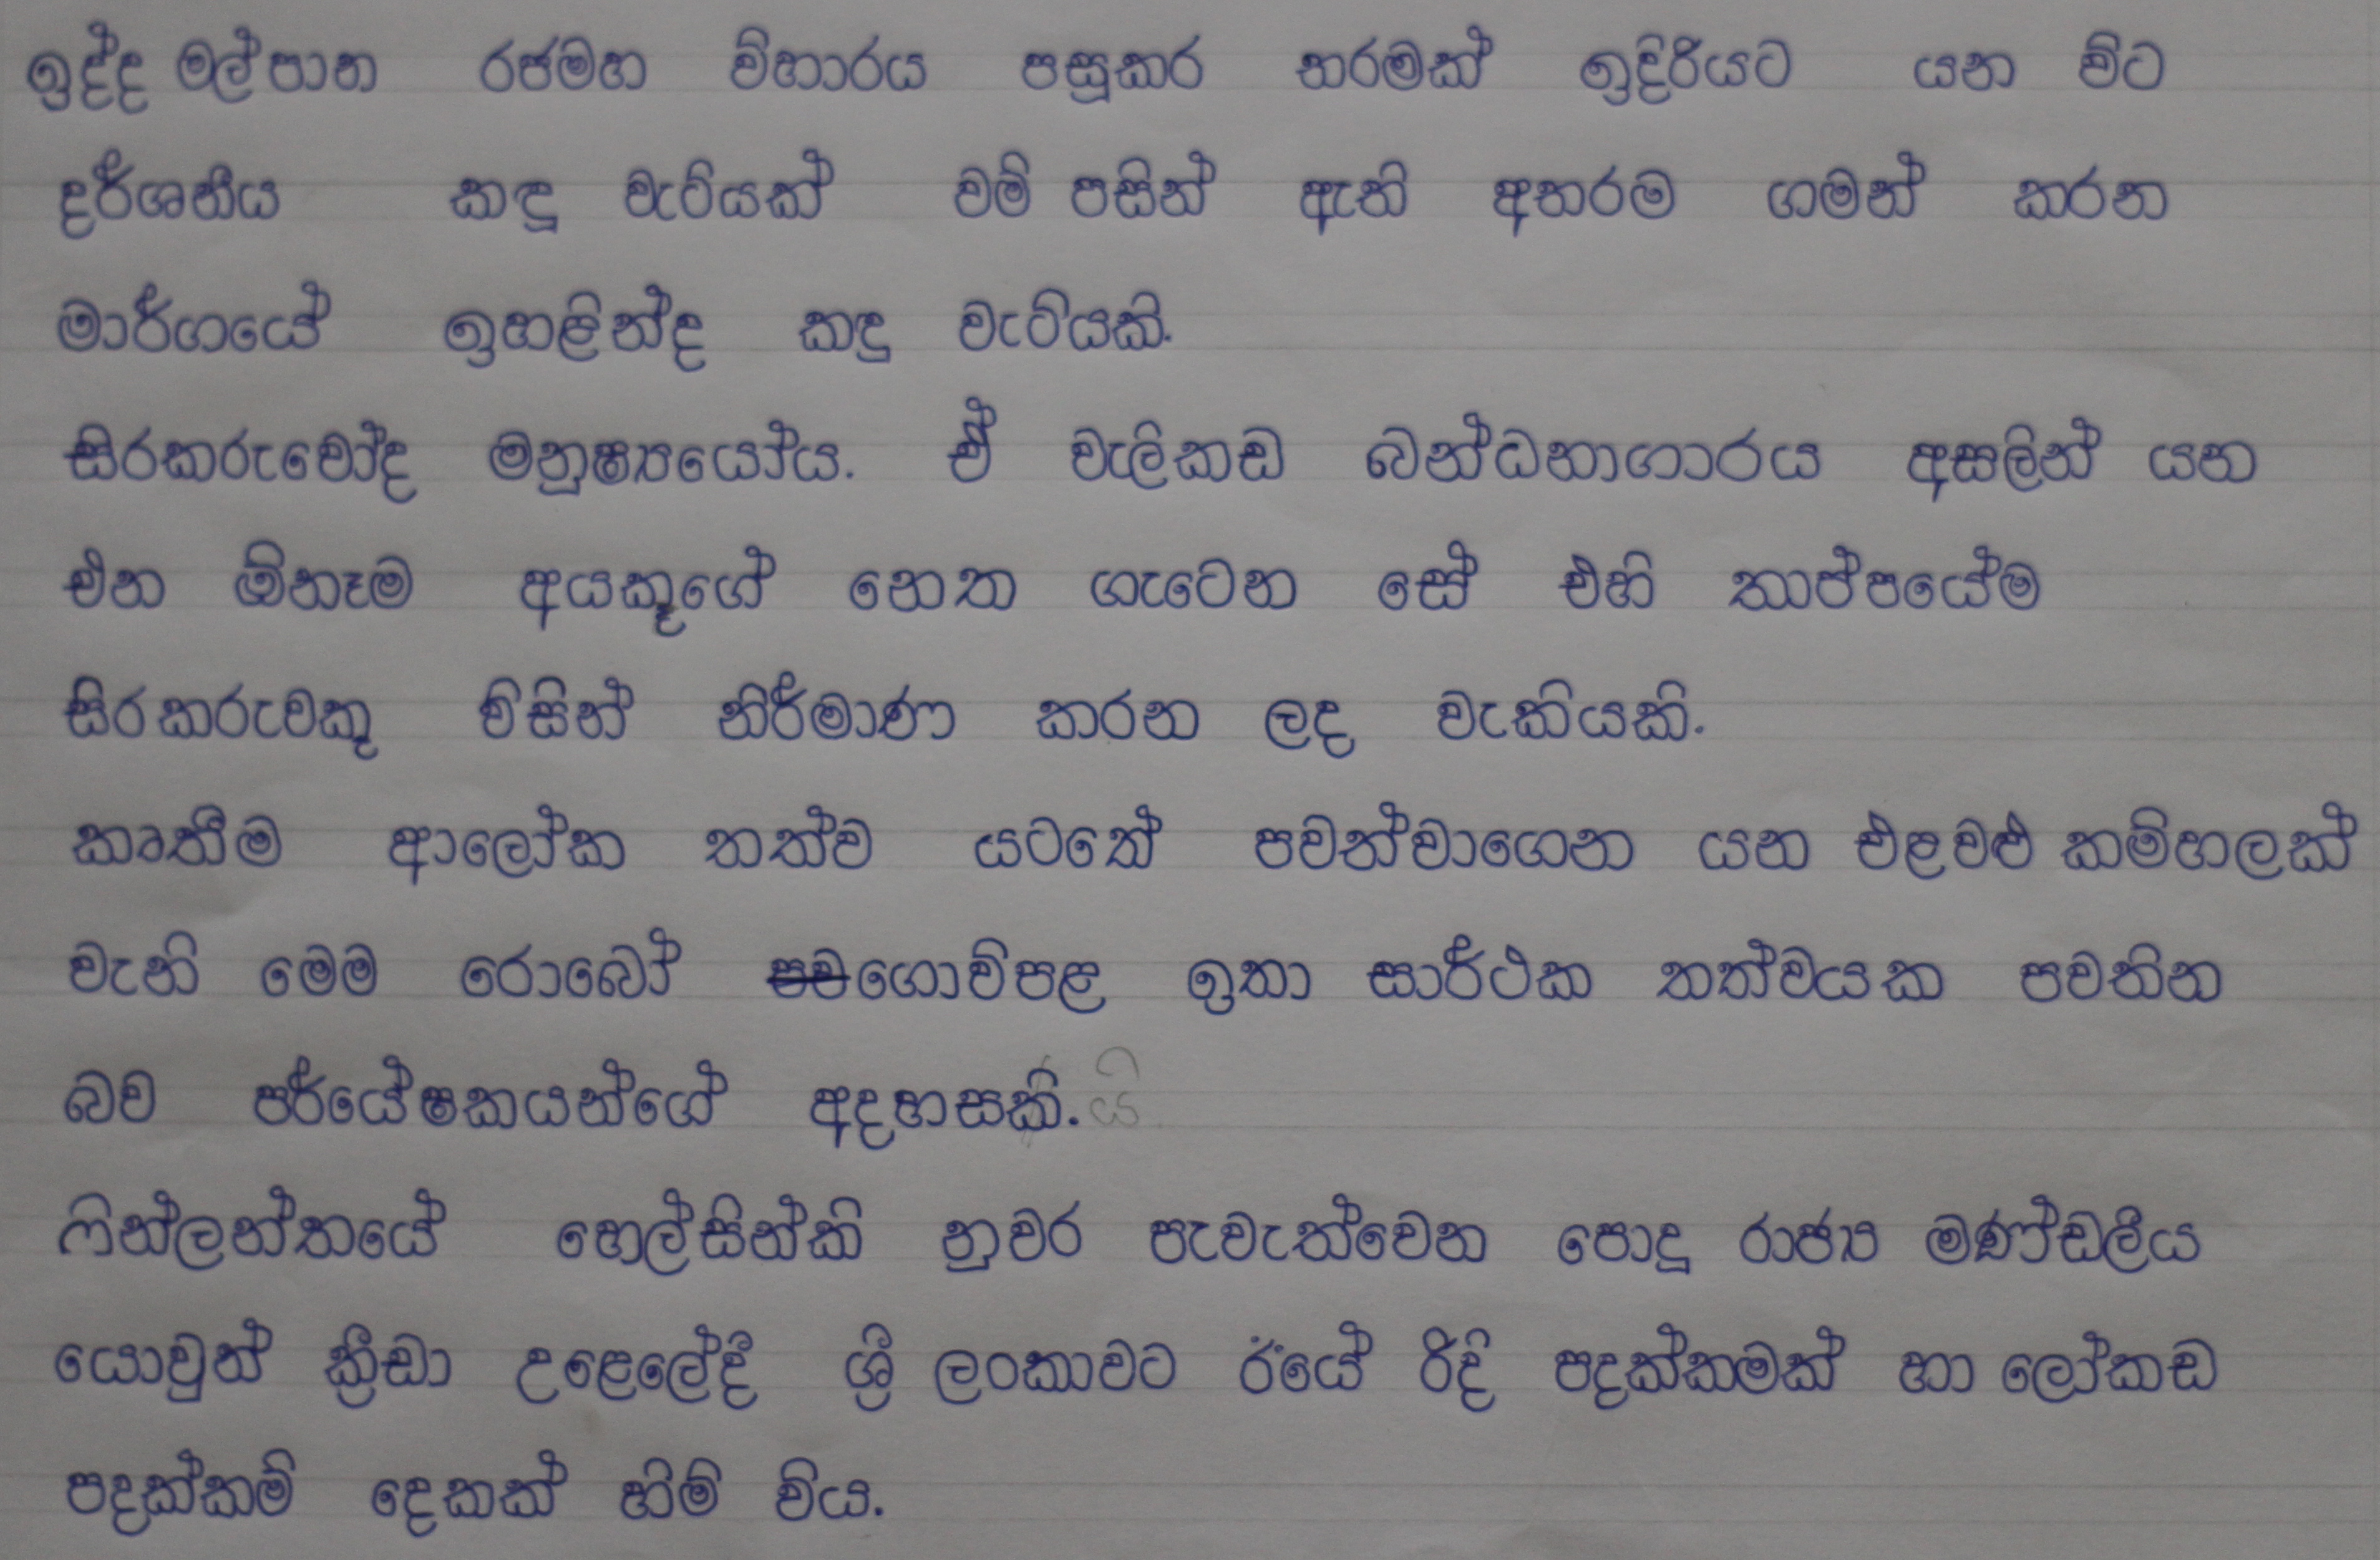 ඉද්ද මල්පාන රජමහ විහාරය පසුකර තරමක් ඉදිරියට යන විට
දර්ශනීය කඳු වැටියක් වම් පසින් ඇති අතරම ගමන් කරන
මාර්ගයේ ඉහළින්ද කඳු වැටියකි.
සිරකරුවෝද මනුෂ්‍යයෝය. ඒ වැලිකඩ බන්ධනාගාරය අසලින් යන
එන ඕනෑම අයකුගේ නෙත ගැටෙන සේ එහි තාප්පයේම
සිරකරුවකු විසින් නිර්මාණ කරන ලද වැකියකි.
කෘතීම ආලෝක තත්ව යටතේ පවත්වාගෙන යන එළවළු කම්හලක්
වැනි මෙම රොබෝ ගොවිපළ ඉතා සාර්ථක තත්වයක පවතින
බව පර්යේෂකයන්ගේ අදහසකි. යි
ෆින්ලන්තයේ හෙල්සින්කි නුවර පැවැත්වෙන පොදු රාජ්‍ය මණ්ඩලීය
යොවුන් ක්‍රීඩා උළෙලේදී ශ්‍රී ලංකාවට ඊයේ රිදී පදක්කමක් හා ලෝකඩ
පදක්කම් දෙකක් හිමි විය.